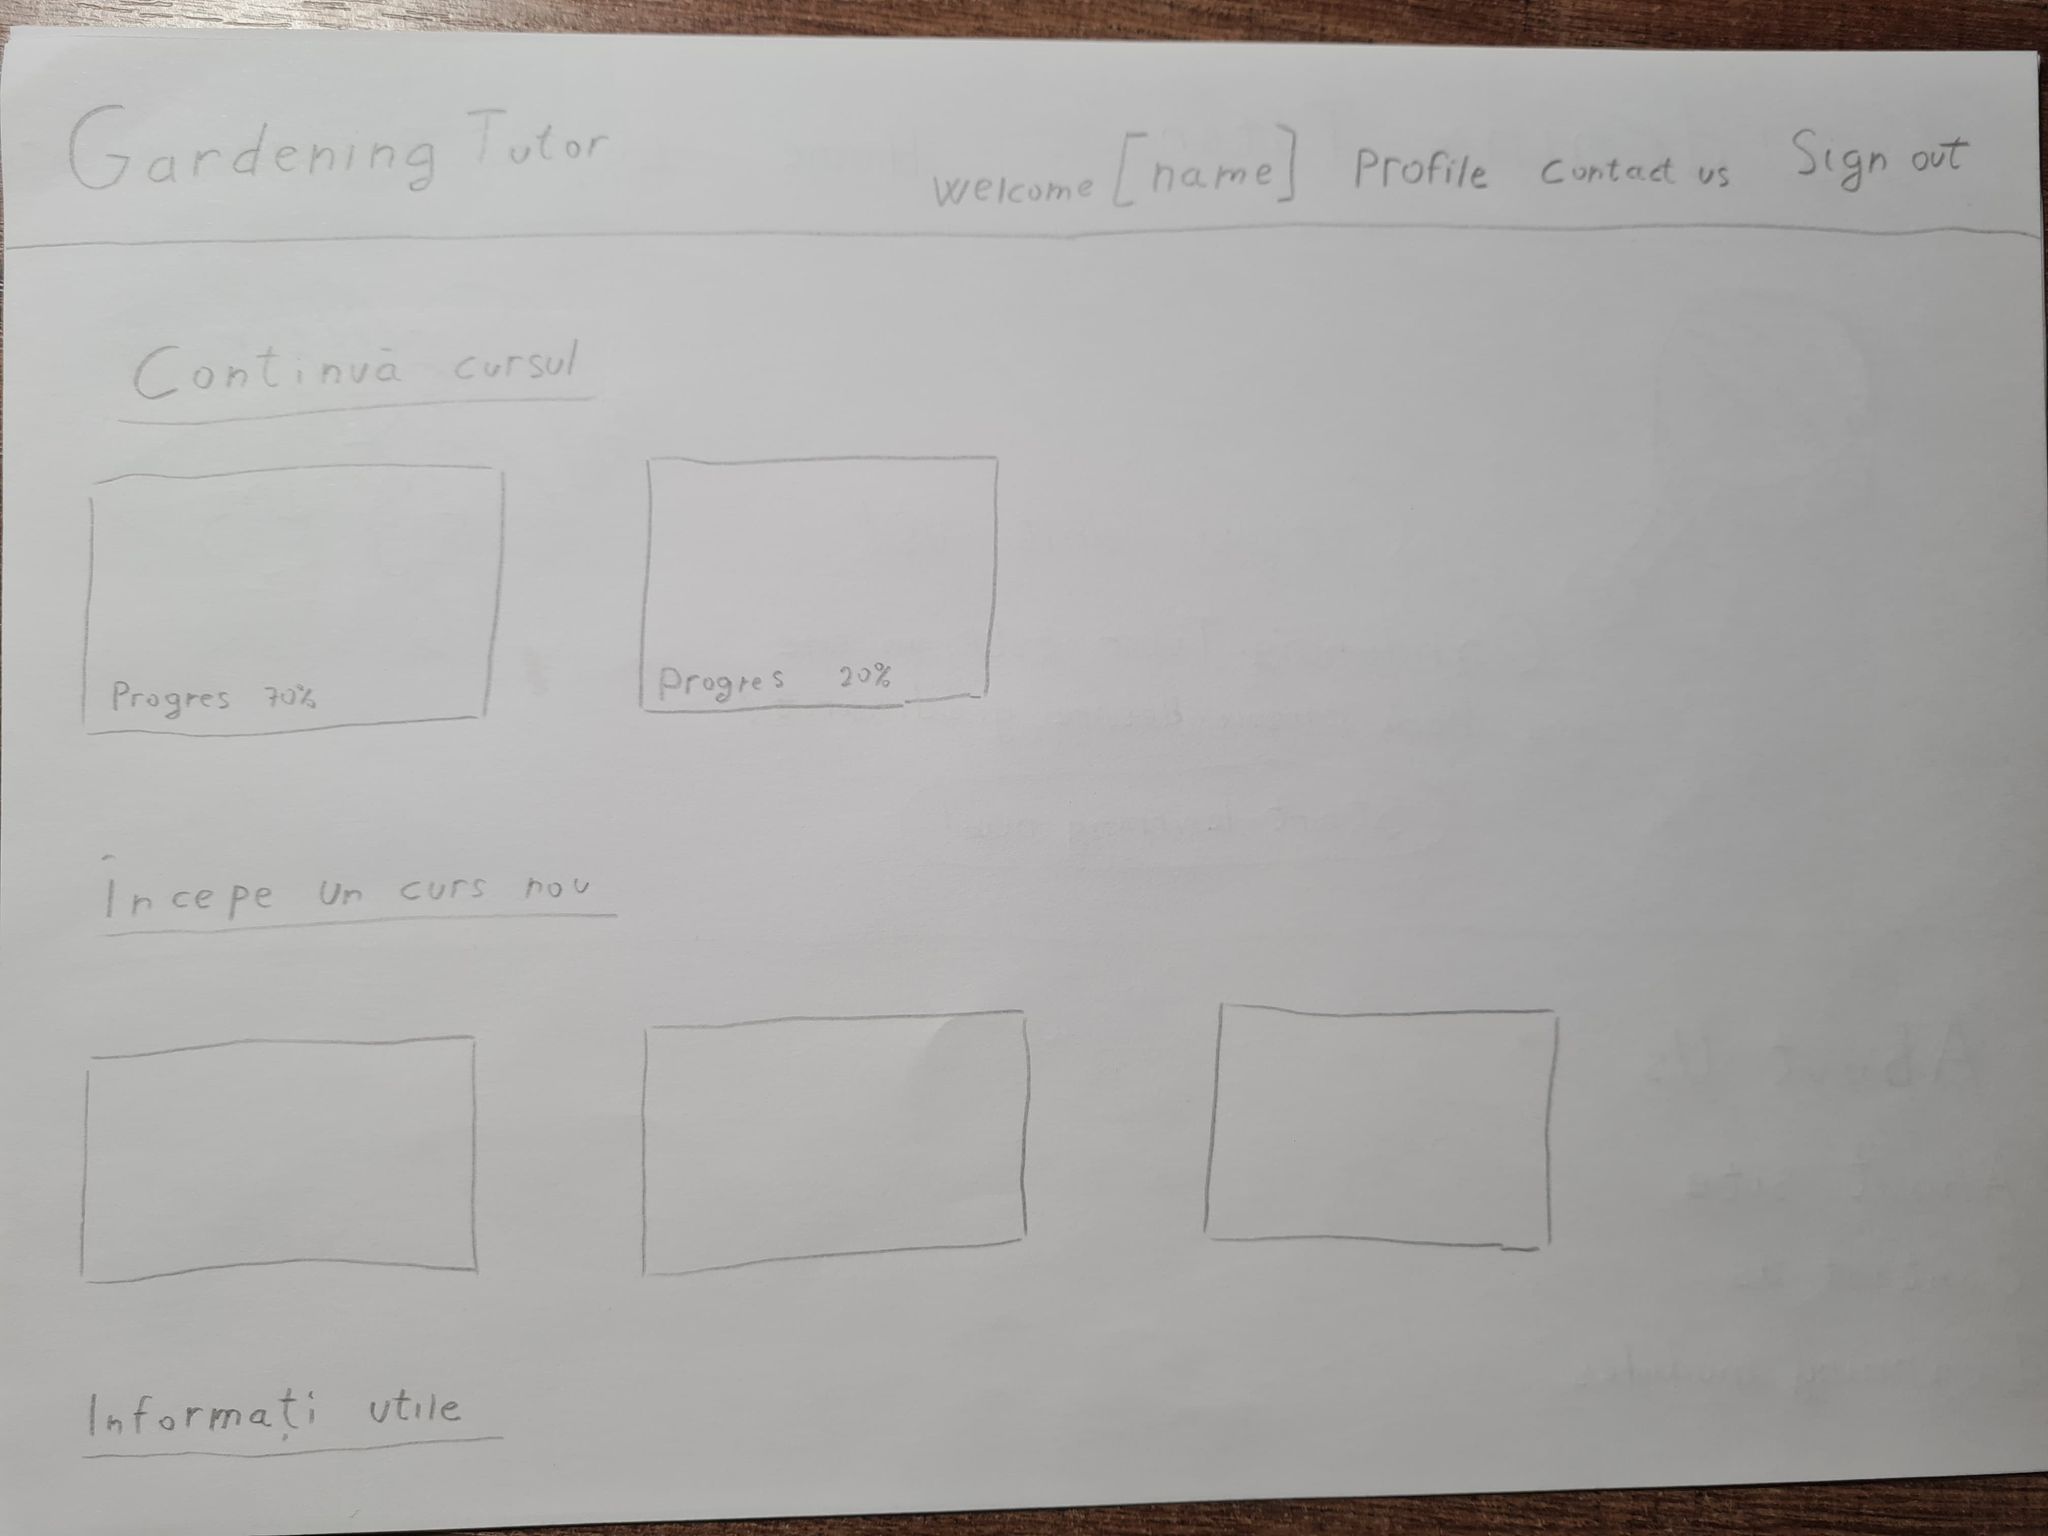 Gardening Tutor
Welcome [name] Profile Contact us Sign out
Continuă cursul
Progres 70%
Progres 20%
Începe un curs nou
Informați utile